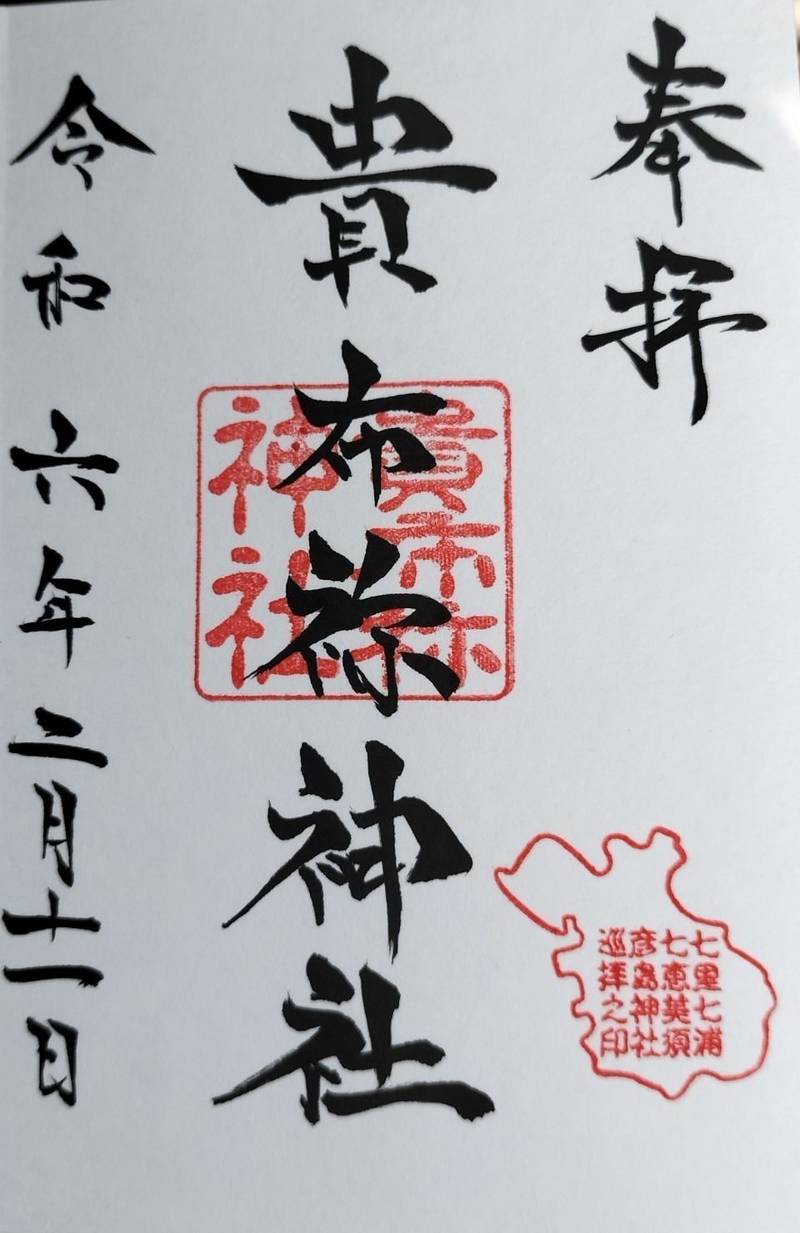 奉拝
貴布祢神社
貴布祢
神社
七里七浦
七恵美須
彦島神社
巡拝之印
令和六年二月十一日